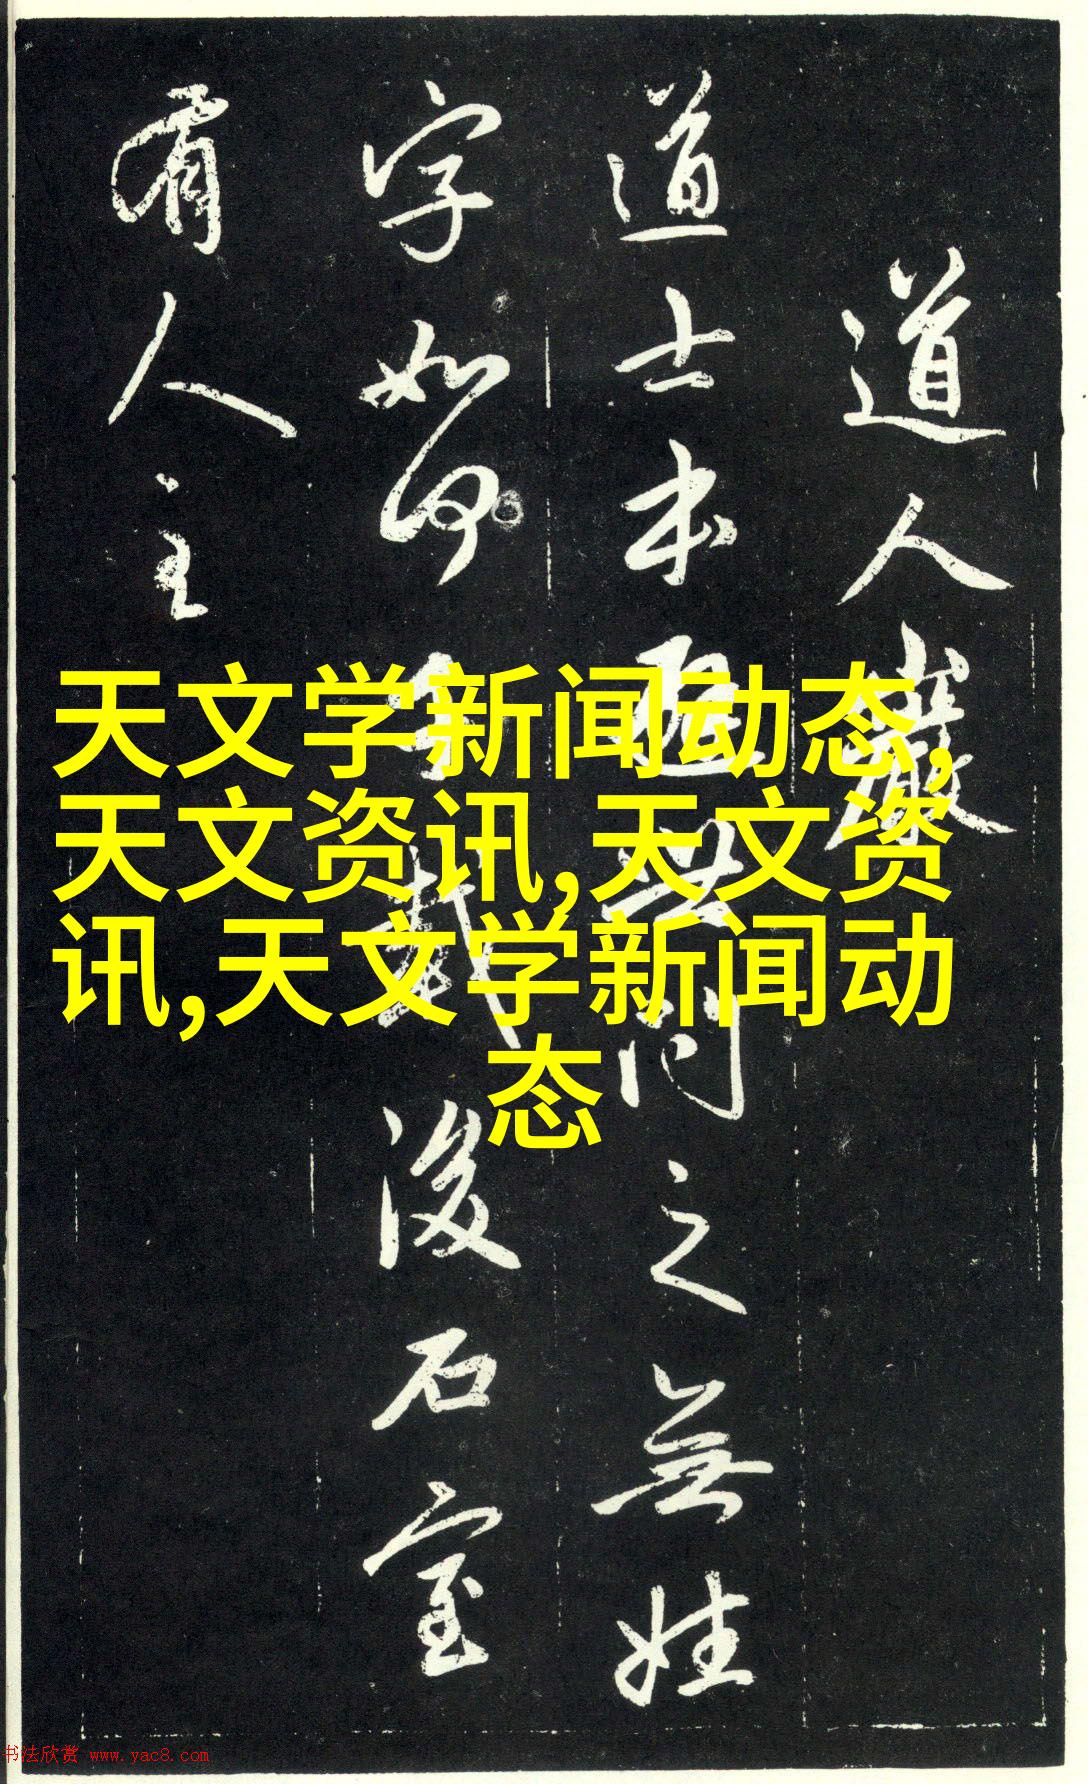 道人巖
道士本世問之無姓
字如何千載後石室
有人至
天文学新闻动态,
天文资讯,天文资
讯,天文学新闻动
态
书法欣赏 www.yac8.com